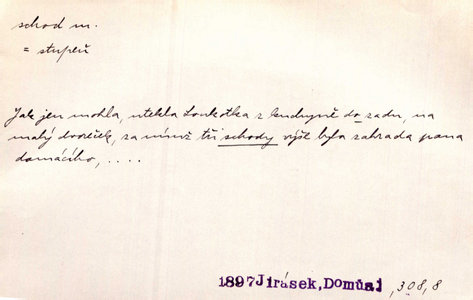 schod m.
= stupeň
Jak jen mohla, utekla Loukotka z kuchyně do sadu, na
malý dvoreček, za nímž tři schody výše byla zahrada pana
domácího, ....
1897 Jirásek, Domů a j ,308,8